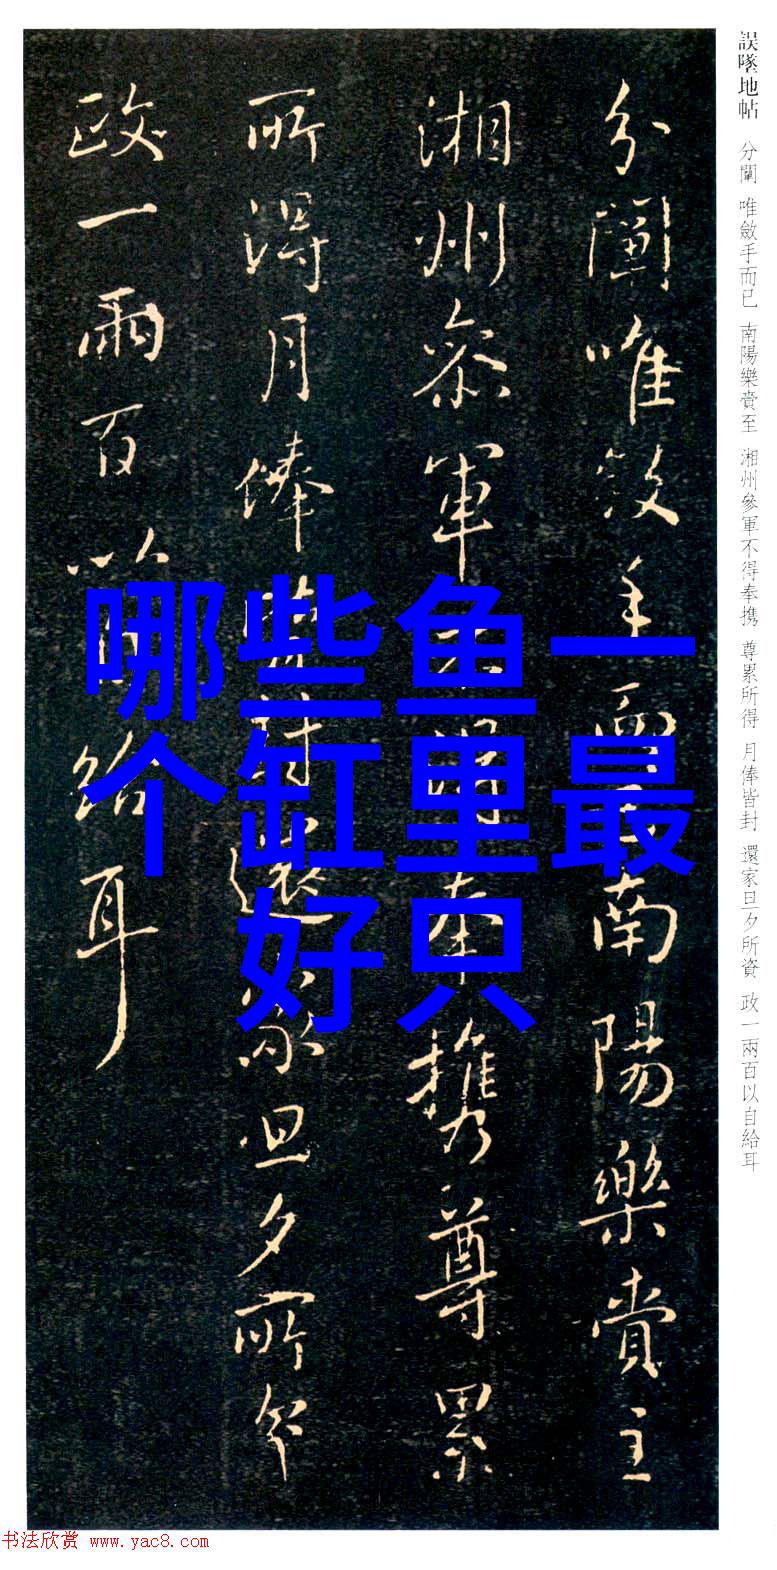 誤墜地帖 分闡 唯斂手而已 南陽樂賁至 湘州參軍不得奉携 尊累所得 月俸皆封 還家旦夕所資 政一兩百以自給耳
分闡唯斂手而已南陽樂賁至
湘州參軍不得奉携尊累
所得月俸皆封還家旦夕所資
政一兩百以自給耳
哪些鱼一
个缸里最
好只
书法欣赏 www.yac8.com